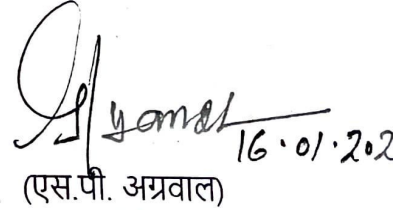 16.01.202
(एस.पी. अग्रवाल)